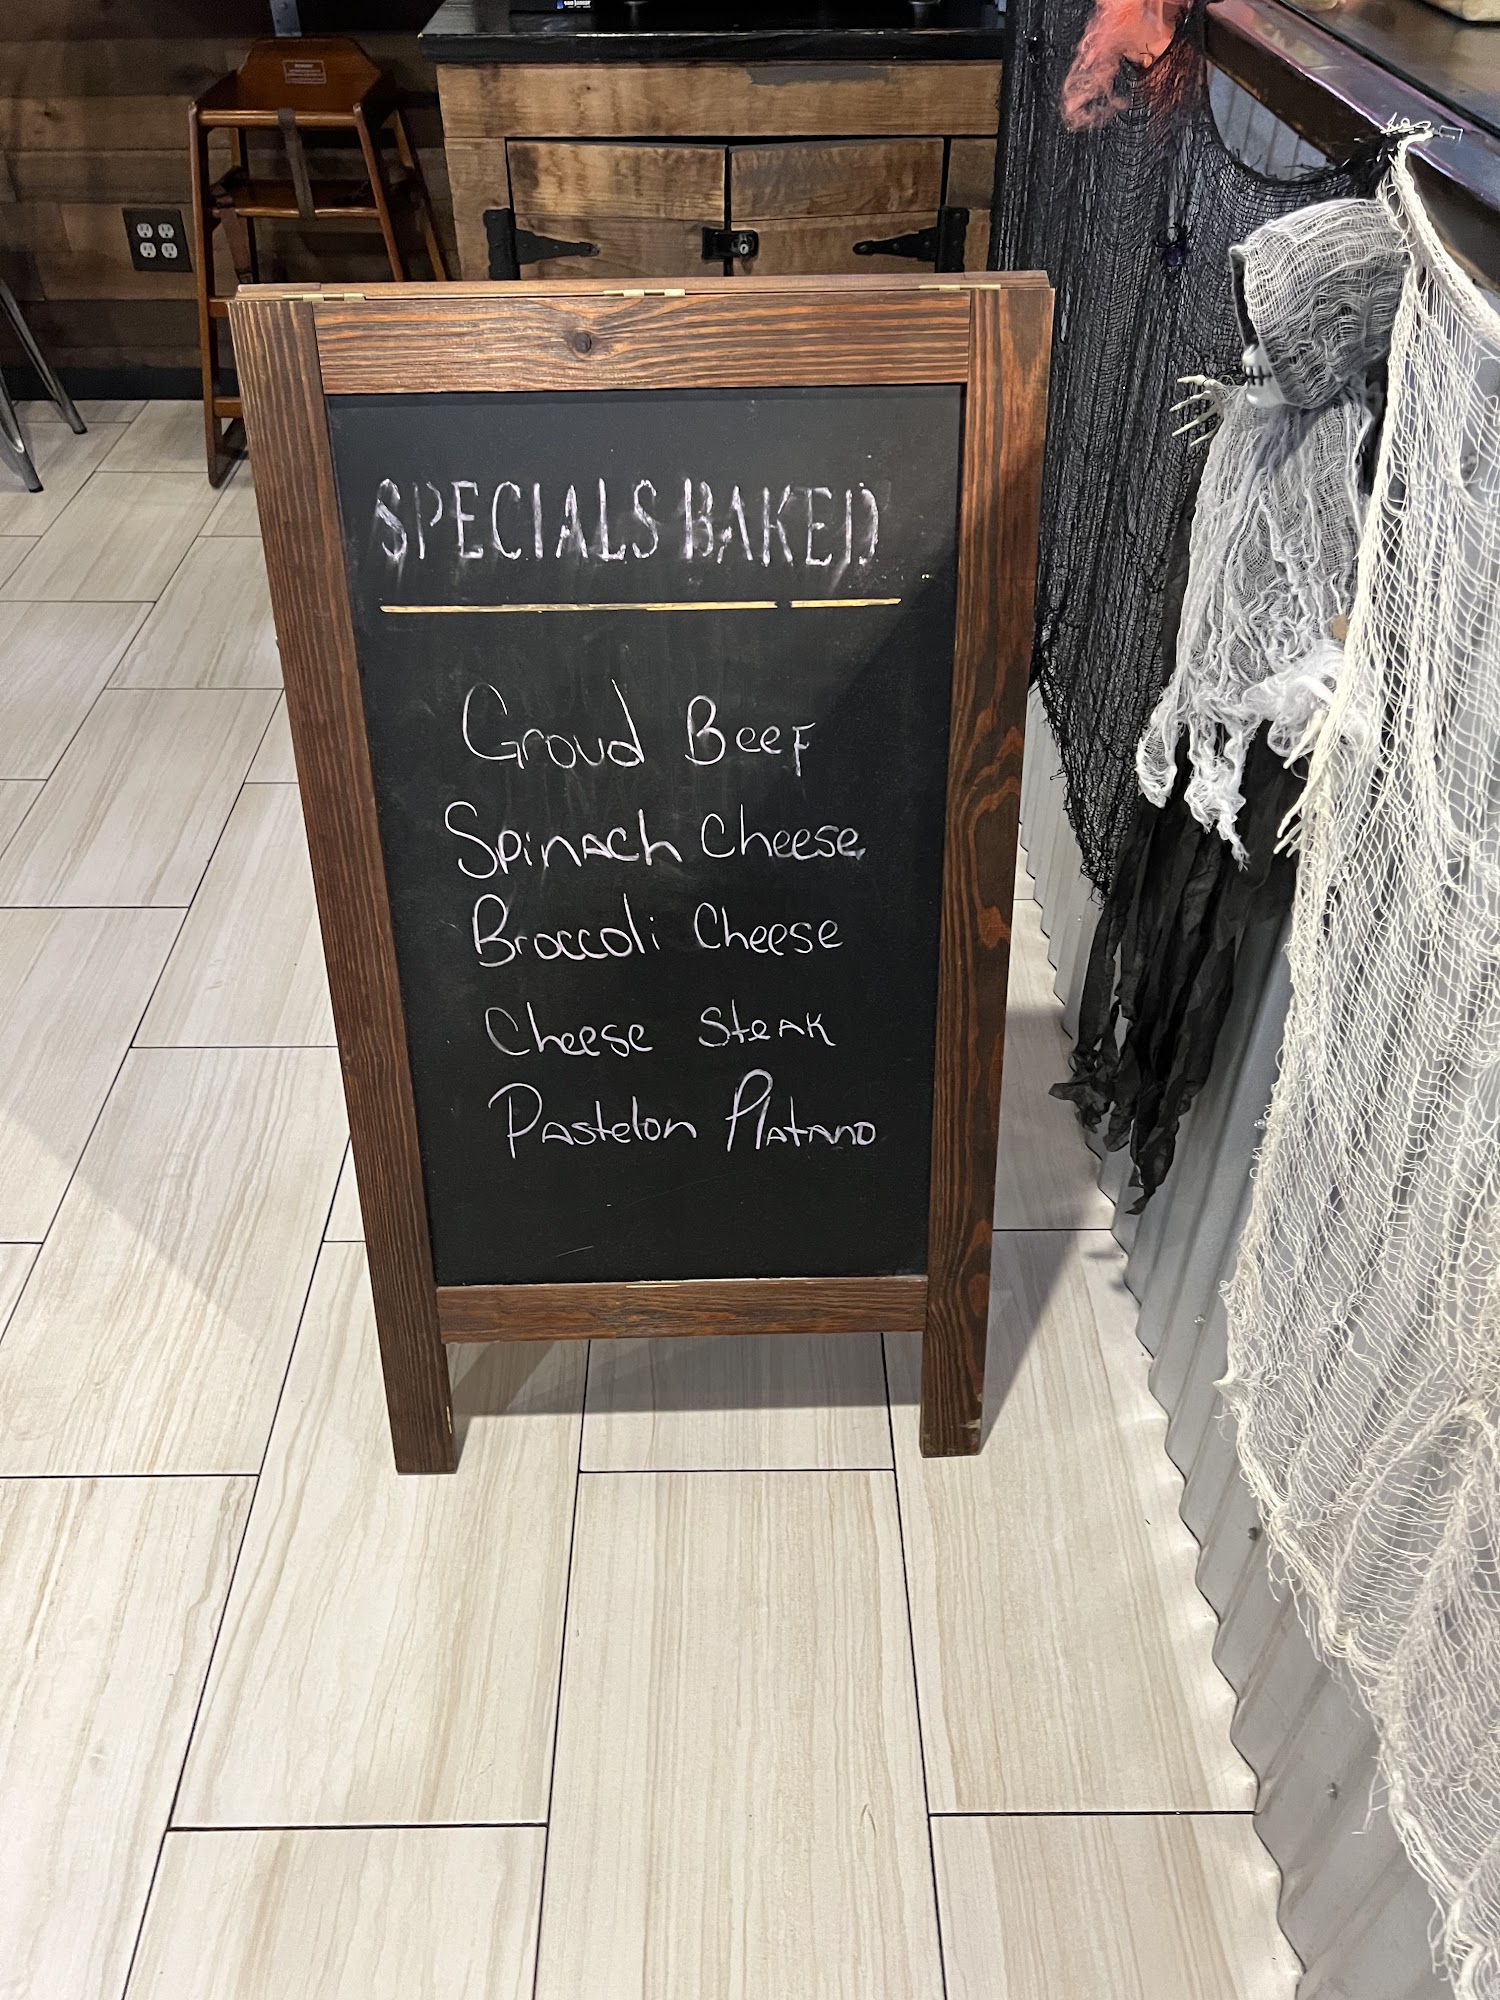 SPECIALS BAKED
Groud Beef
Spinach Cheese
Broccoli Cheese
Cheese Steak
Pastelon Platano